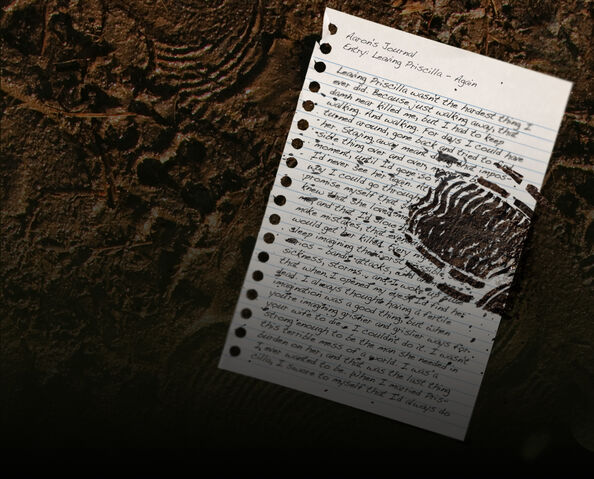 Aaron's Journal
Entry: Leaving Priscilla - Again
Leaving Priscilla wasn't the hardest thing I
ever did. Because just walking away, that
damn near killed me, but I had to keep
walking. And walking. For days I could have
turned around, gone back and tried to
her. Staying away meant
sible thing over and over
moment, until I'd gone so
I'd never see her again. It
way I could go through
promise myself that
knew that she loved
me and that I'd always
make mistakes, that
would get her killed.
sleep imagining the worst
ios - bandit attacks,
sickness, storms - and I woke up
that when I opened my eyes I'd find her
dead. I always thought having a fertile
imagination was a good thing but when
you're imagining grislier and grislier ways for
your wife to die, I couldn't do it. I wasn't
strong enough to be the man she needed in
this terrible mess of a world. I was a
burden on her, and that was the last thing
I ever wanted to be. When I married Pris-
cilla, I swore to myself that I'd always do